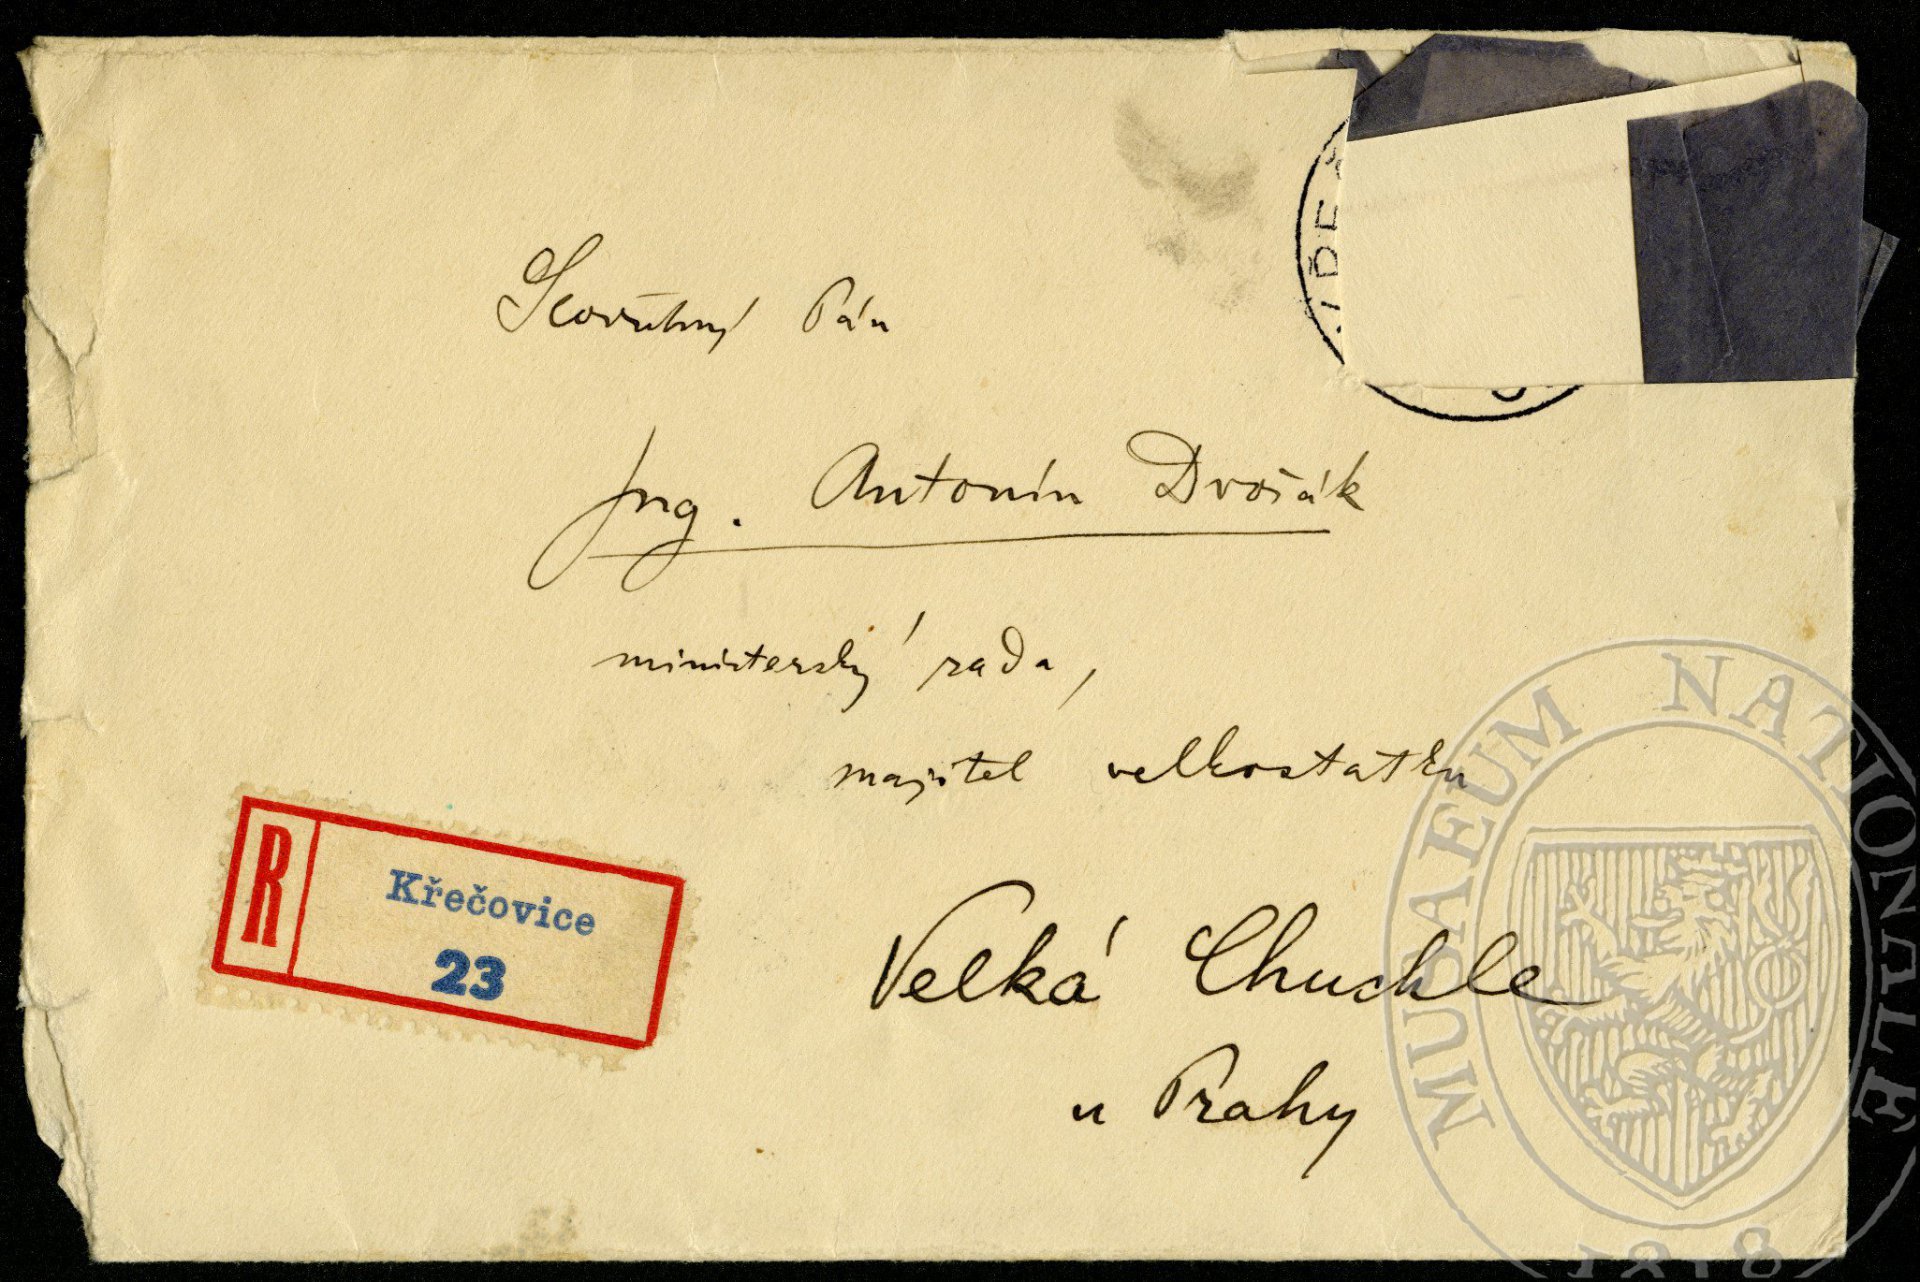 Slovutný Pán
Ing. Antonín Dvořák
ministerský rada,
majitel velkostatku
R
Křečovice
23
Velká Chuchle
u Prahy
MUSAEUM NATIONALE
1818